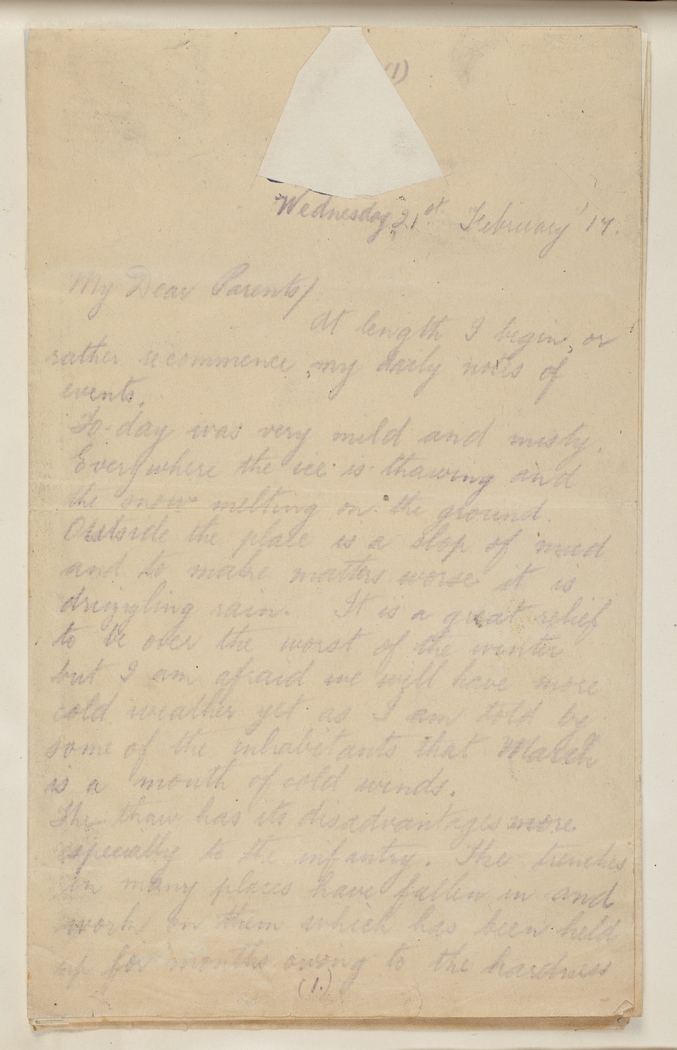 (1)
Wednesday 21st February '17.
My Dear Parents/
At length I begin, or
rather recommence, my daily notes of
events.
To-day was very mild and misty.
Everywhere the ice is thawing and
the snow melting on the ground
Outside the place is a slop of mud
and to make matters worse it is
drizzling rain. It is a great relief
to be over the worst of the winter
but I am afraid we will have more
cold weather yet as I am told by
some of the inhabitants that March
is a month of cold winds.
The thaw has its disadvantages more
especially to the infantry. The trenches
in many places have fallen in and
work on them which has been held
up for months owing to the hardness
(1.)